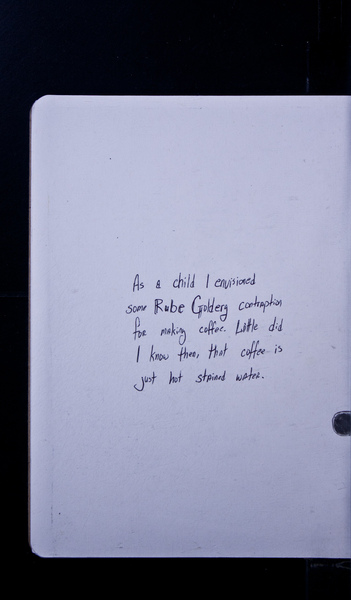 As a child I envisioned
some Rube Goldberg contraption
for making coffee. Little did
I know then, that coffee is
just hot stained water.